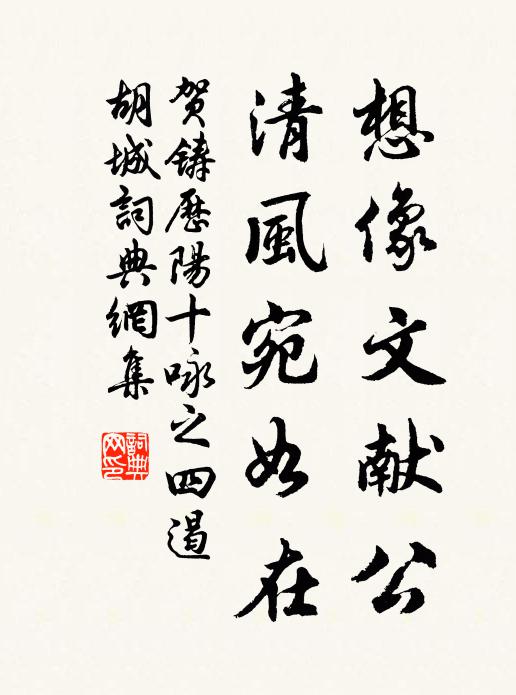 想像文献公
清風宛如在
贺鑄歷陽十咏之四遏
胡城詞典網集
詞典网印